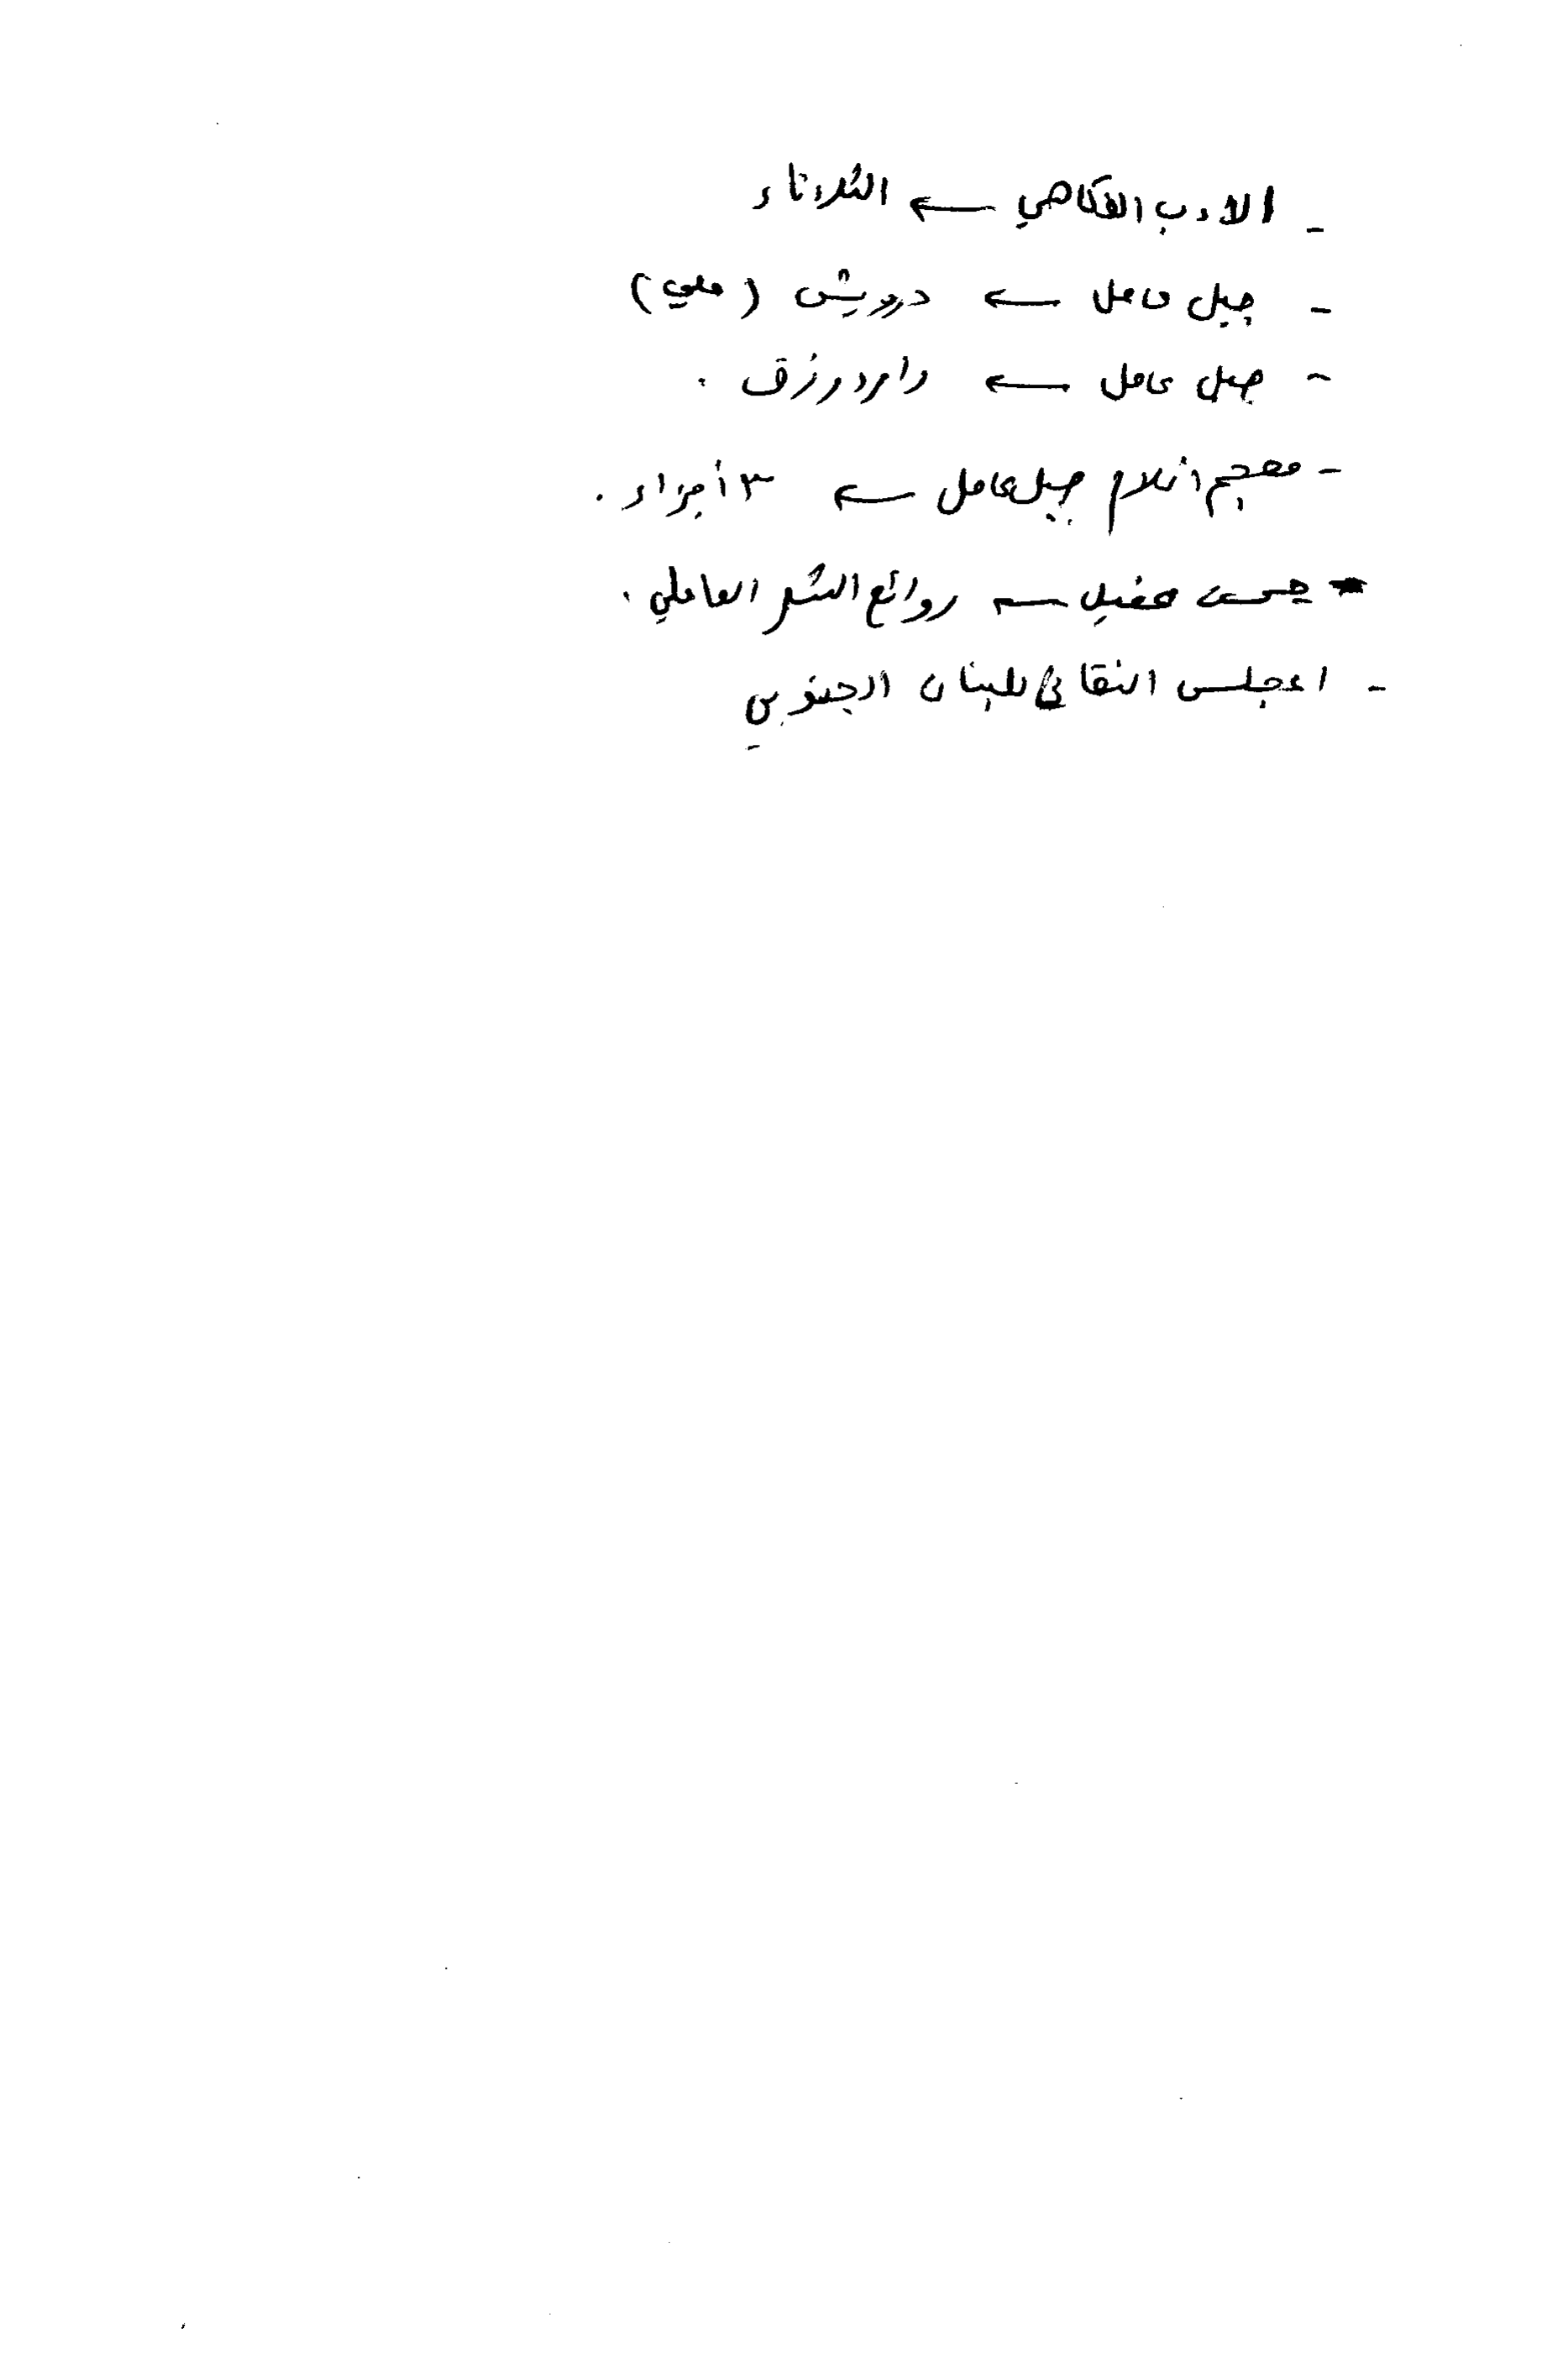 - الادب الفكاهي ← الثلاثاء
- جبل عامل ← درويش (علي)
- جبل عامل ← رزق .
- معجم اعلام جبل عامل ← ٣ أجزاء .
- ← روائع الشعر العاملي .
- المجلس الثقافي للبنان الجنوبي